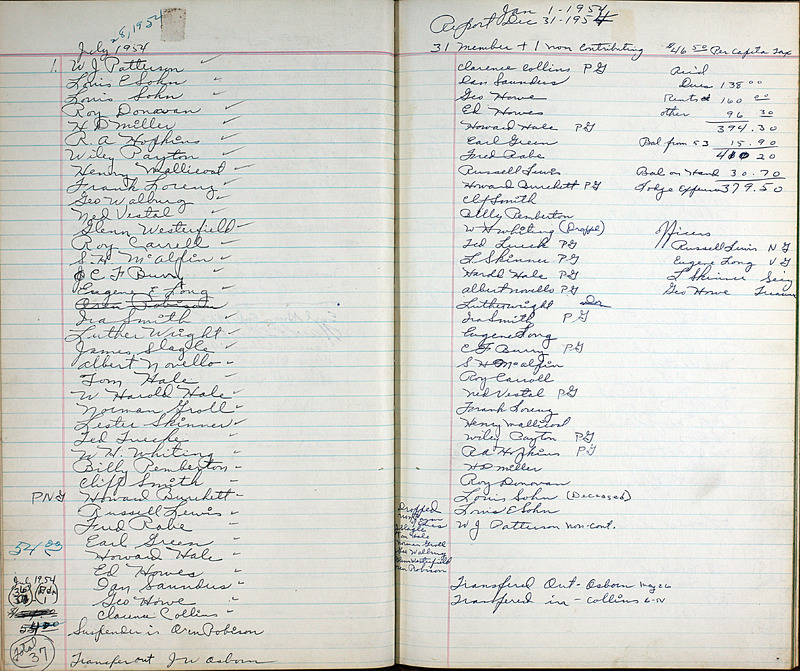 28, 1954
July 1954
1. W J Patterson
Louis E Sohn
Louis Sohn
Roy Donovan
H D Miller
R. A Hopkins
Wiley Payton
Henry Mallicoat
Frank Lorenz
Geo Walburg
Ned Vestal
Glenn Westerfield
Roy Carrell
S. H. McAlpin
C F Burry
Eugene E Long
Ira Smith
Luther Wright
James Slagle
Albert Novello
Tom Hale
W Harold Hale
Norman Groll
Lester Skinner
Ted Luecke
W. H. Whiting
Billy Pemberton
Cliff Smith
PNG Howard Burchett
Russell Lewis
Fred Rabe
Earl Green
Howard Hale
Ed Howes
Dan Saunders
Geo Howe
Clarence Collins
Suspended is Orin Robison
Total 37
Transfer out J W Osborn
Jan 1-1954
Report Dec 31-1954
31 Member + 1 non contributing $46 50 Per Capita Tax
Clarence Collins P G
Dan Saunders
Geo Howe
Ed Howes
Howard Hale P G
Earl Green
Fred Rabe
Russell Lewis
Howard Burchett P G
Clif Smith
Billy Pemberton
W H Whiting (Dropped)
Ted Lueck P G
L Skinner P G
Harold Hale P G
albert novello P G
Luther wright
Ira Smith P G
Eugene Long
C F Burry P G
S H McAlpin
Roy Carroll
ned Vestal P G
Frank Lorenz
Henry Mallicoat
Wiley Payton P G
R A Hopkins P G
H D miller
Roy Donovan
Louis Sohn (Deceased)
Louis E Sohn
W J Patterson non-cont.
Transfered Out - Osborn May 26
Transfered in - Collins
Dues 138 00
Rents 160 00
other 96 30
394.30
Bal from 53 15.90
20
Bal on Hand 30.70
Lodge Expense 379.50
Officers
Russell Lewis N G
Eugene Long V G
L Skinner Secy
Geo Howe Treasurer
Dropped
Slagle
Tom Hale
Norman Groll
Geo Walburg
Glenn Westerfield
Orin Robison